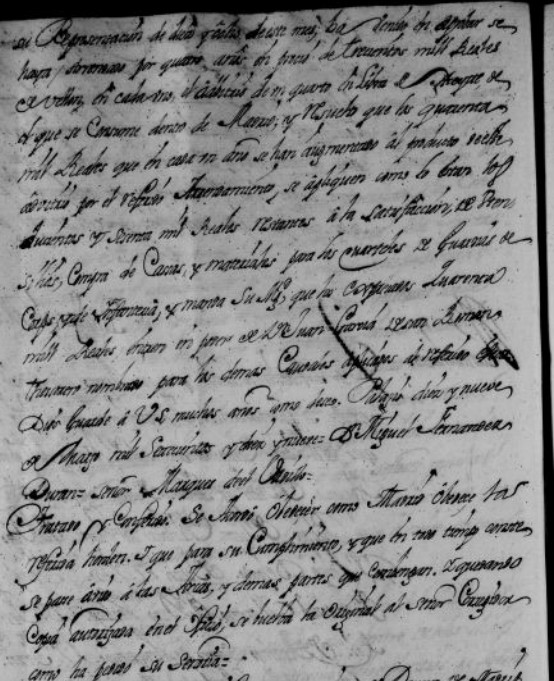 su Representacion de dies y ocho de este mes, ha venido en aprobar se
haya arrendado por quatro años en precio de trecientos mill Reales
de Vellon, en cada uno, el adbitrio de un quarto en Libra de
el que se Consume dentro de Madrid; y resuelto que los quarenta
mill Reales que en cada un año se han augmentado al producto de el
adbitrio por el referido Arrendamiento, se apliquen como lo eran los
Ducientos y Sesenta mil Reales restantes a la satisfaccion, de Uten
silios, Compra de Camas, y materiales para los cuarteles de Guardias de
Corps, y de Infanteria, y manda Su Mg.d que los expresados Quarenta
mill Reales, entren en poder de Dn Juan Garcia de San Roman
thesorero nombrado para los demas Caudales aplicados al referido
Dios Guarde a VS muchos años como deseo. Palacio diez y nueve
de Marzo mil Setecientos y diez y nueve= Dn Miguel Fernandez
Duran= señor Marques del Vadillo=
Tratado y Conferido. Se Acordó Obedecer como Madrid Obedece la
referida horden. Y que para su Cumplimiento, y que en todo tiempo conste
se pase aviso a las partes, y demas partes que combengan. Y quedando
Copia autorizada en el Oficio, se buelba la Original al señor Corregidor
como ha pedido su Señoria=